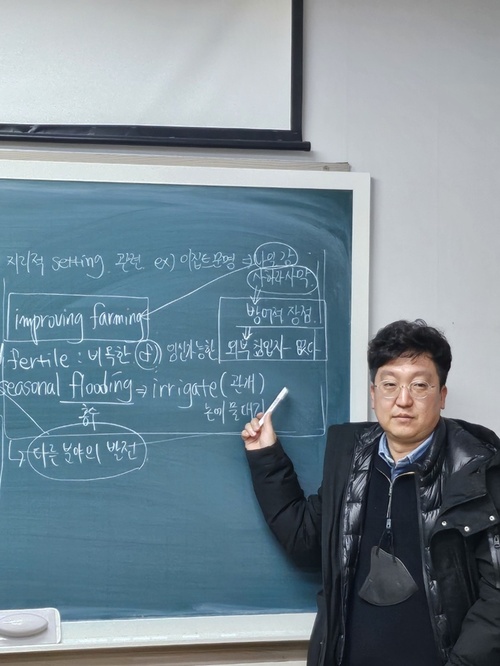 지리적 setting 관련 ex) 이집트문명 ⇒ 나일강
사하라사막.
improving farming
방어적 장점.
fertile : 비옥한 (f) 임신가능한
외부 침입자 없다
seasonal flooding ⇒ irrigate (관개)
논에 물대기
↳ 다른 분야의 발전